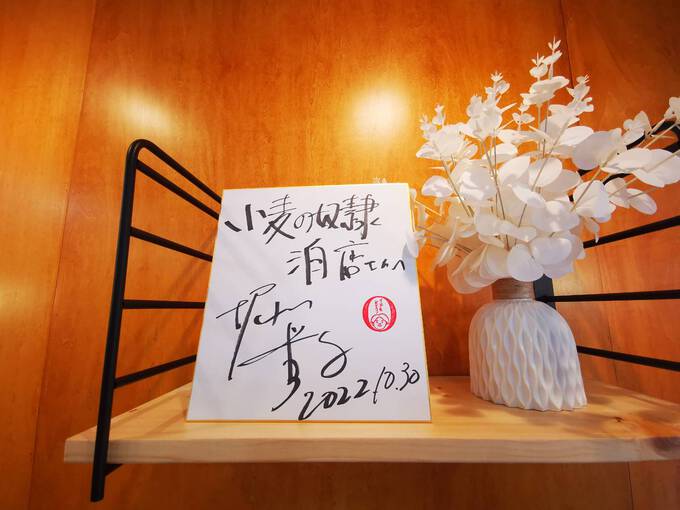 小麦の奴隷
泊店さん
2022.10.30